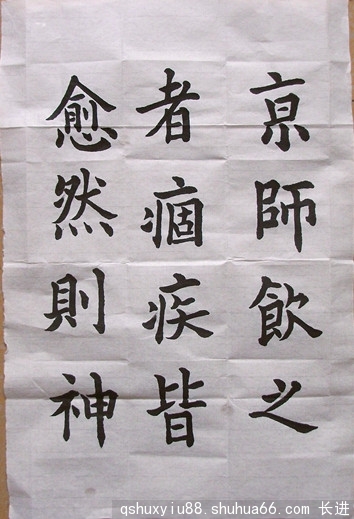 京師飲之
者痼疾皆
愈然則神
qshuxyiu88.shuhua66.com 长进